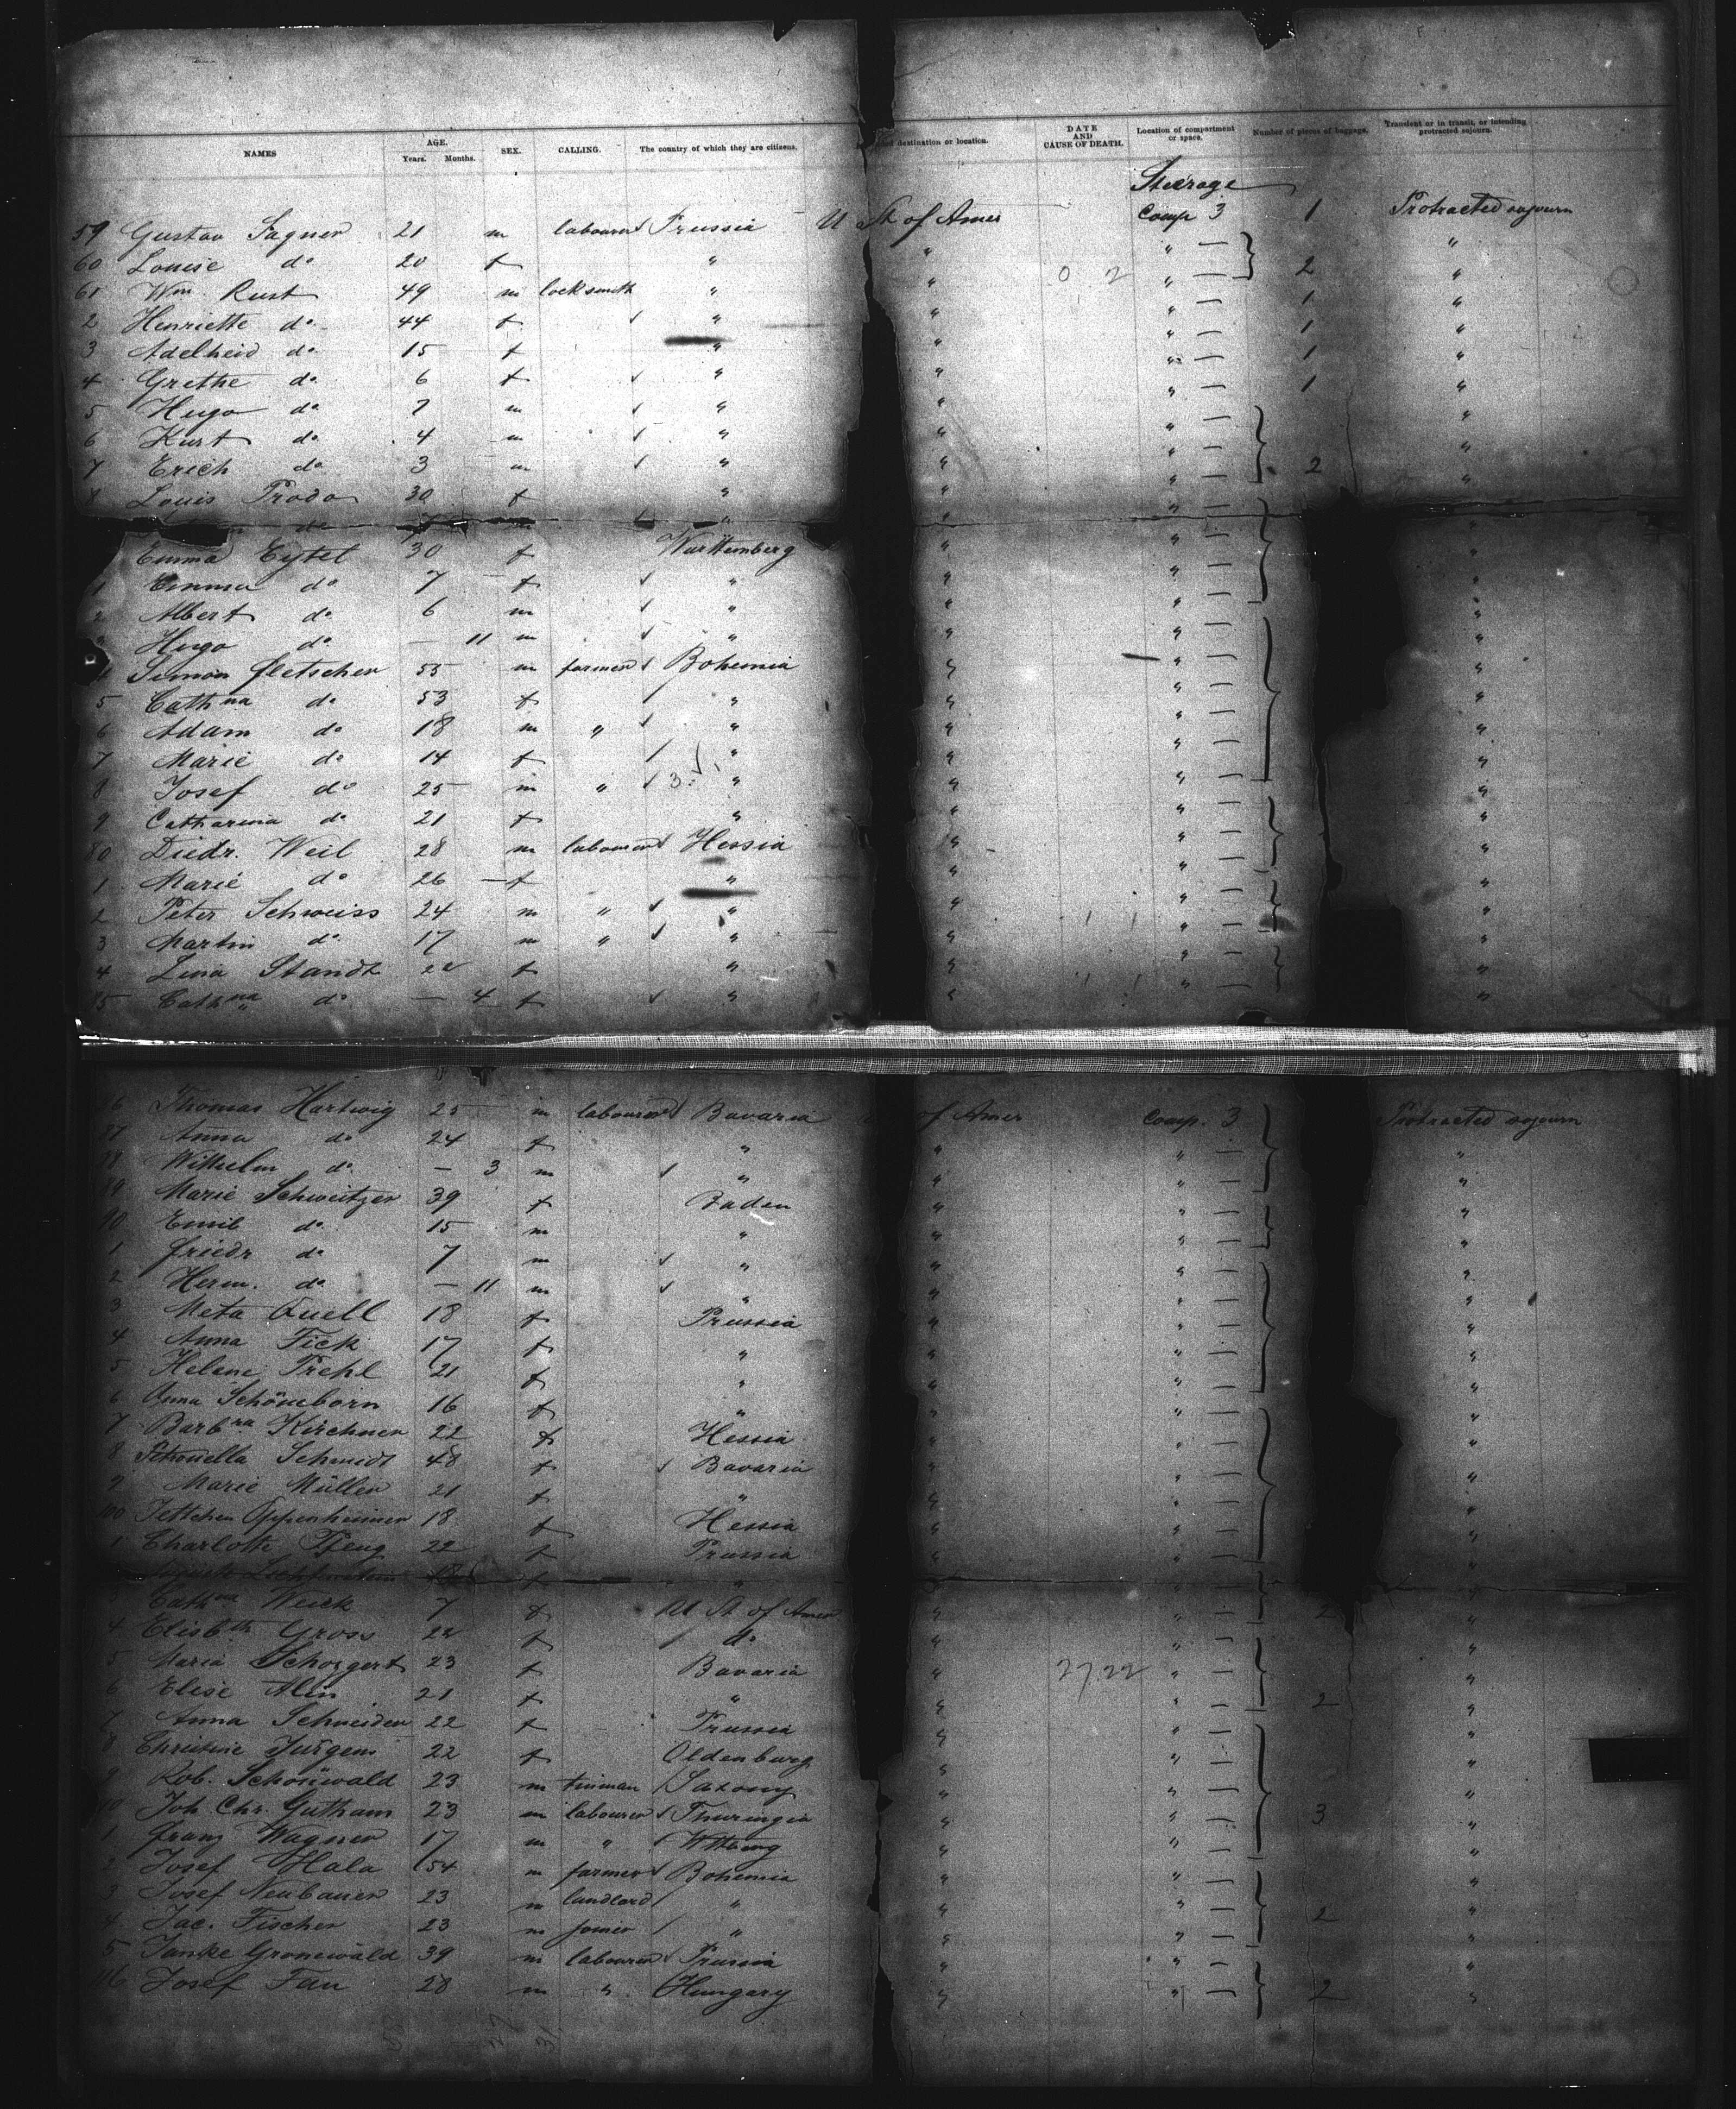 NAMES AGE. Years. Months. SEX. CALLING. The country of which they are citizens. destination or location. DATE AND CAUSE OF DEATH. Location of compartment or space. Number of pieces of baggage. Transient or in transit, or intending protracted sojourn.
Steerage
59 Gustav Sagner 21 m labourer Prussia U St of Amer Comp 3 1 Protracted sojourn
60 Louise do 20 f " " " — "
61 Wm. Rust 49 m locksmith " " " — 2 "
2 Henriette do 44 f " " " — 1 "
3 Adelheid do 15 f " " " — 1 "
4 Grethe do 6 f " " " — 1 "
5 Hugo do 7 m " " " — 1 "
6 Kurt do 4 m " " " — "
7 Erich do 3 m " " " — 2 "
8 Louis 30 f " " " — "
do "
Emma Eytel 30 f Württemberg " " — "
1 Emma do 7 f " " " — "
2 Albert do 6 m " " " — "
Hugo do — 11 m " " " — "
Simon Fletscher 55 m farmer Bohemia " " — "
5 Cathna do 53 f " " " — "
6 Adam do 18 m " " " " — "
7 Marie do 14 f " " " — "
8 Josef do 25 m " " " " — "
9 Catharina do 21 f " " " — "
80 Diedr. Weil 28 m labourer Hessia " " — "
1 Marie do 26 f " " " — "
2 Peter Schweiss 24 m " " " " — "
3 Martin do 17 m " " " " — "
4 Lina Standt 22 f " " " — "
85 Cathna do — 4 f " " " — "
86 Thomas Hartwig 25 m labourer Bavaria of Amer Comp. 3 Protracted sojourn
87 Anna do 24 f " " " — "
88 Wilhelm do — 3 m " " " — "
89 Marie Schweitzer 39 f Baden " " — "
90 Emil do 15 m " " " — "
1 Friedr do 7 m " " " — "
2 Herm. do — 11 m " " " — "
3 Meta Quell 18 f Prussia " " — "
4 Anna Fick 17 f " " " — "
5 Helene Prehl 21 f " " " — "
6 Anna Schöneborn 16 f " " " — "
7 Barbra Kirchner 22 f Hessia " " — "
8 Petronella Schmidt 48 f Bavaria " " — "
9 Marie Müller 21 f " " " — "
100 Jettchen Oppenheimer 18 f Hessia " " — "
1 Charlotte 22 f Prussia " " — "
18 f " "
3 Cathna Weick 7 f U St of Amer " " — 2 "
4 Elisbth Gross 22 f do " " — "
5 Maria 23 f Bavaria " 27.22 " — "
6 Elise Alin 21 f " " " — 2 "
7 Anna Schneider 22 f Prussia " " — "
8 Christine Jürgens 22 f Oldenburg " " — "
9 Rob. Schönwald 23 m tinman Saxony " " — "
10 Joh. Chr. Gutham 23 m labourer Thuringia " " — 3 "
1 Franz Wagner 17 m " Wttberg " " — "
2 Josef Hala 54 m farmer Bohemia " " — "
3 Josef Neubauer 23 m landlord " " " — "
4 Jac. Fischer 23 m joiner " " " — 2 "
5 Janke Gronewald 39 m labourer Prussia " " — "
116 Josef Fau 28 m " Hungary " " — 2 "